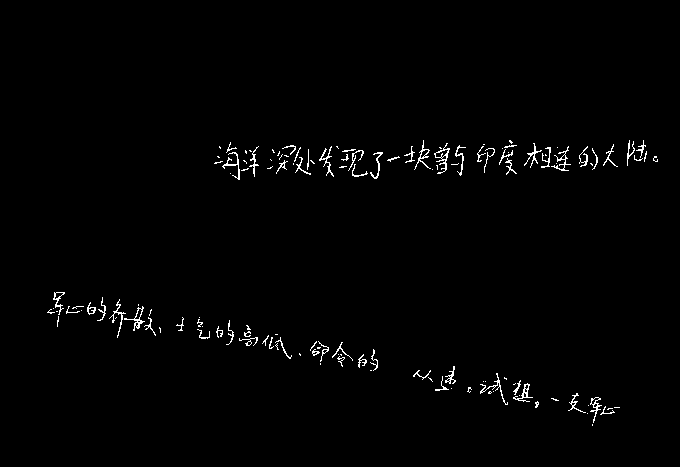 海洋深处发现了一块曾与印度相连的大陆。
军心的齐散、士气的高低、命令的从违。试想。一支军心